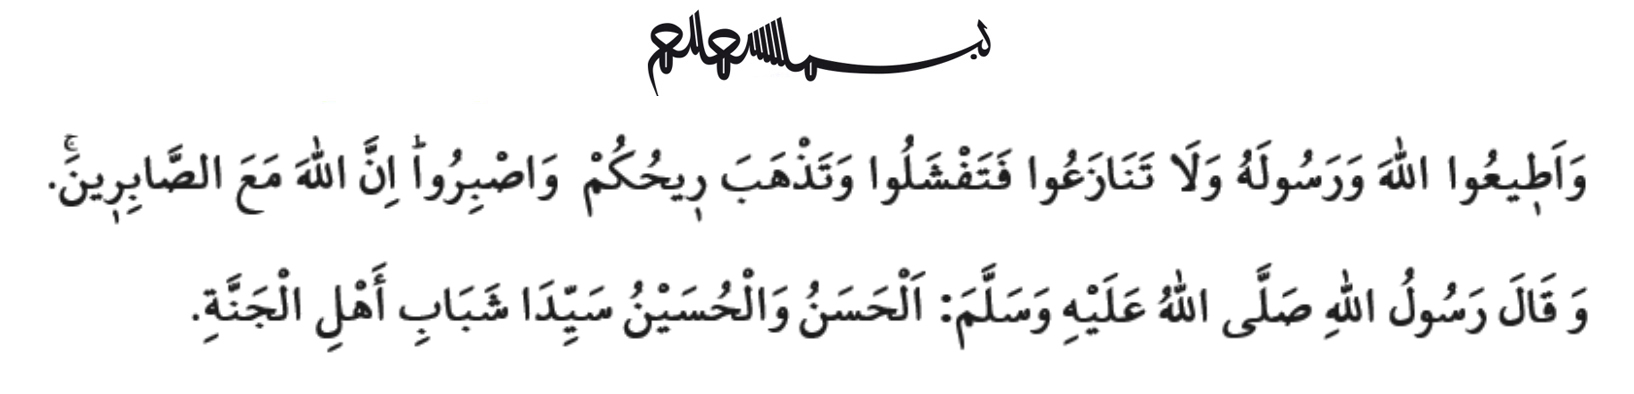 وَاَطٖيعُوا اللّٰهَ وَرَسُولَهُ وَلَا تَنَازَعُوا فَتَفْشَلُوا وَتَذْهَبَ رٖيحُكُمْ وَاصْبِرُواؕ اِنَّ اللّٰهَ مَعَ الصَّابِرٖينَۚ.
وَ قَالَ رَسُولُ اللّٰهِ صَلَّى اللّٰهُ عَلَيْهِ وَسَلَّمَ: اَلْحَسَنُ وَالْحُسَيْنُ سَيِّدَا شَبَابِ أَهْلِ الْجَنَّةِ.